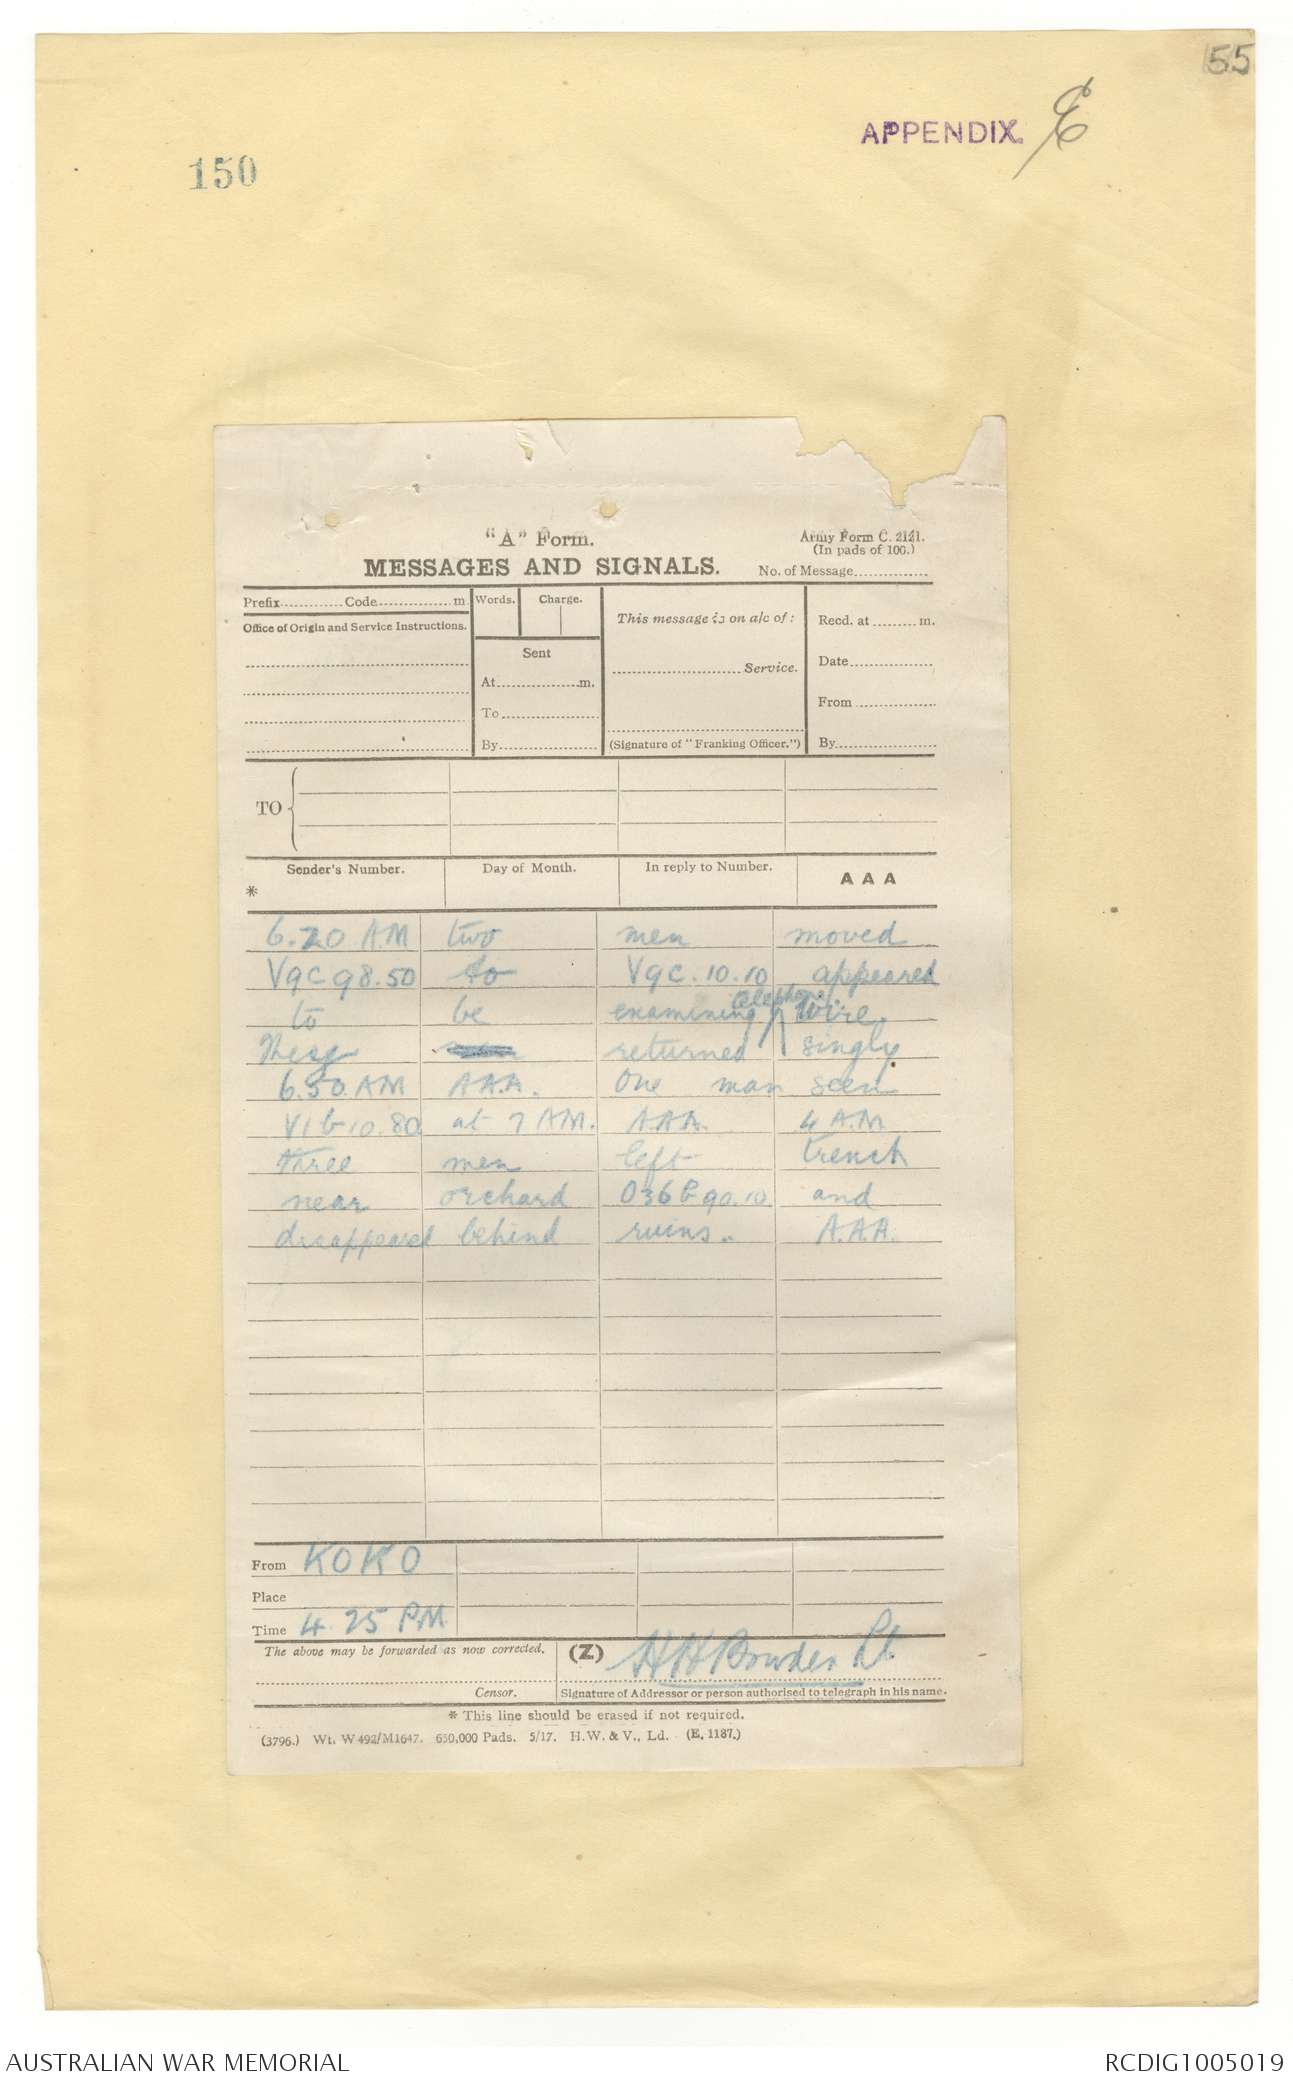 55
APPENDIX. E
150
"A" Form.
Army Form C. 2121.
(In pads of 100.)
MESSAGES AND SIGNALS.
No. of Message..............
Prefix............Code...............m
Words.
Charge.
Office of Origin and Service Instructions.
Sent
At................m.
To
By
This message is on a/c of :
Service.
(Signature of "Franking Officer.")
Recd. at .........m.
Date
From
By
TO
Sender's Number.
Day of Month.
In reply to Number.
A A A
*
6.20 AM two men moved
V9C 98.50 to V9C.10.10 appeared
telephone
to be examining wire.
These returned singly
6.50 AM AAA. One man seen
V1b 10.80 at 7 AM. AAA. 4 AM
three men left trench
near orchard O36b 90.10 and
disappeared behind ruins. A.A.A.
From KOKO
Place
Time 4.25 PM
The above may be forwarded as now corrected.
(Z)
H H Bowden Lt
Censor.
Signature of Addressor or person authorised to telegraph in his name.
* This line should be erased if not required.
(3796.) Wt. W 492/M1647. 650,000 Pads. 5/17. H.W. & V., Ld. (E. 1187.)
AUSTRALIAN WAR MEMORIAL
RCDIG1005019